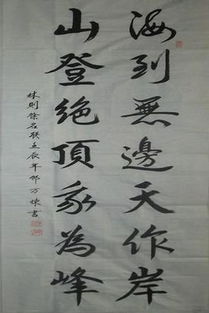 海到無邊天作岸
山登絕頂我為峰
林則徐名聯壬辰年邹方斌書